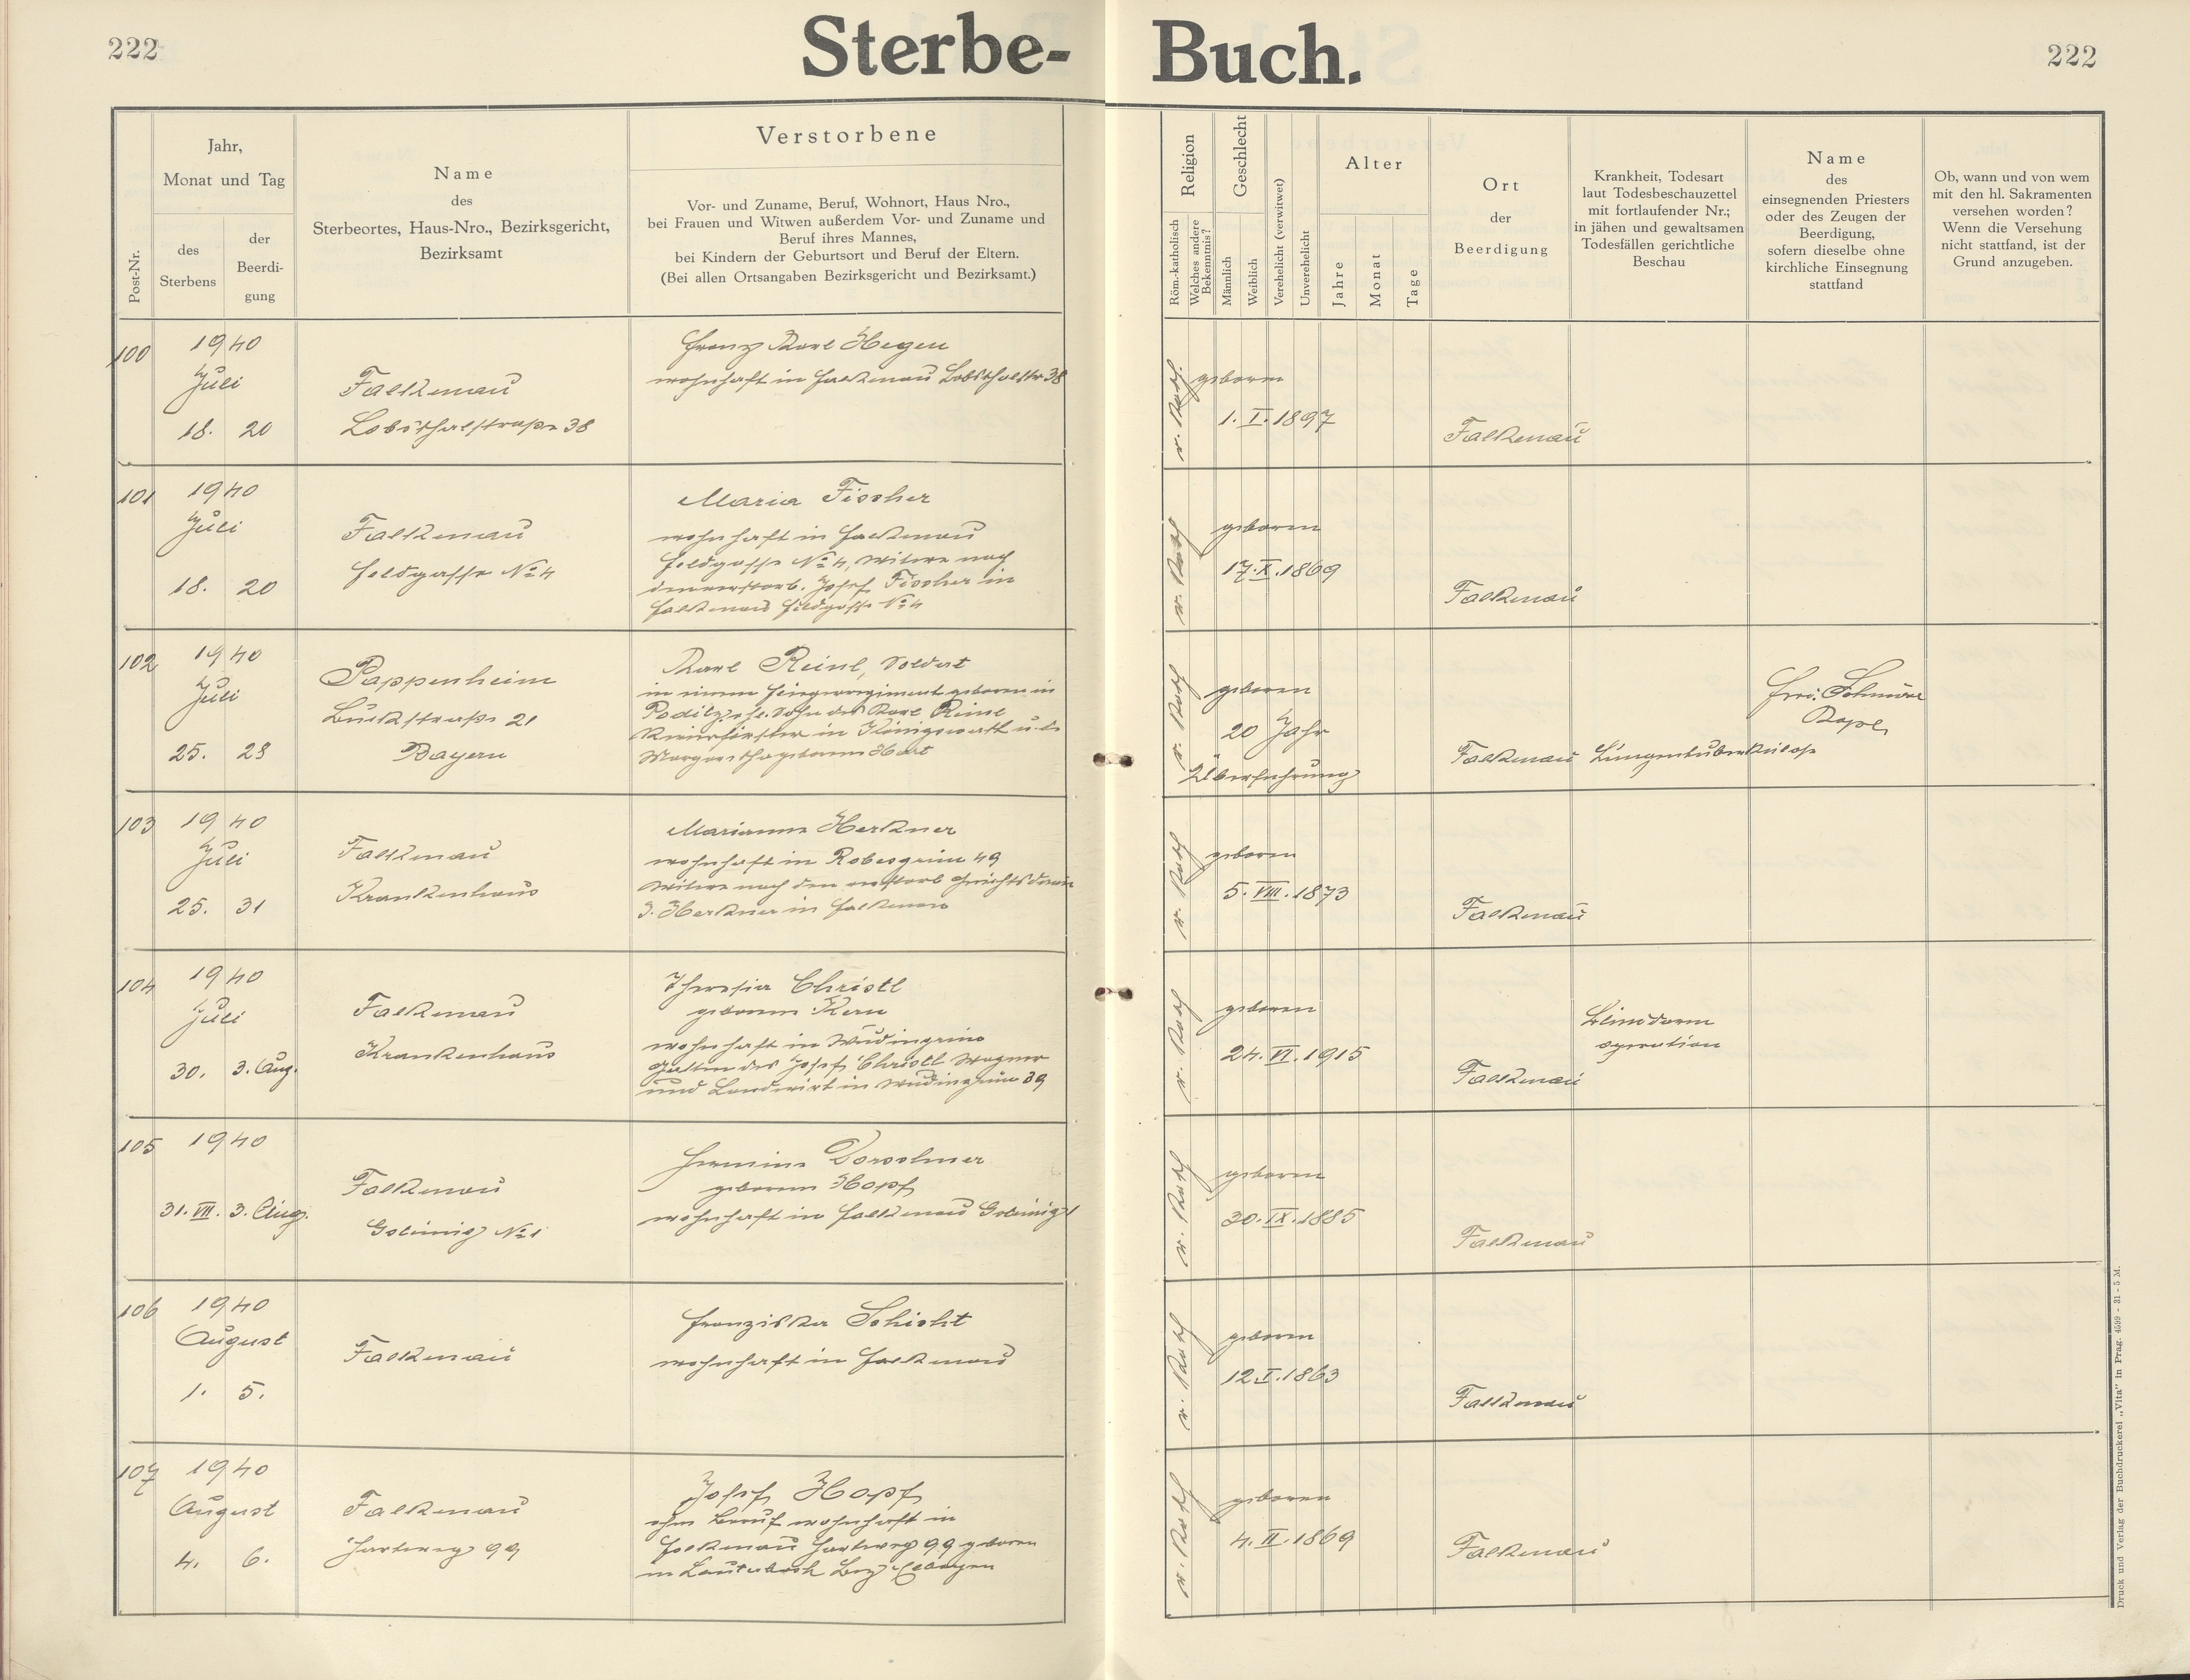 222
Sterbe-Buch.
222
Post-Nr.
Jahr,
Monat und Tag
des
Sterbens
der
Beerdi-
gung
Name
des
Sterbeortes, Haus-Nro., Bezirksgericht,
Bezirksamt
Verstorbene
Vor- und Zuname, Beruf, Wohnort, Haus Nro.,
bei Frauen und Witwen außerdem Vor- und Zuname und
Beruf ihres Mannes,
bei Kindern der Geburtsort und Beruf der Eltern.
(Bei allen Ortsangaben Bezirksgericht und Bezirksamt.)
Religion
Röm.-katholisch
Welches andere
Bekenntnis?
Geschlecht
Männlich
Weiblich
Verehelicht (verwitwet)
Unverehelicht
Alter
Jahre
Monat
Tage
Ort
der
Beerdigung
Krankheit, Todesart
laut Todesbeschauzettel
mit fortlaufender Nr.;
in jähen und gewaltsamen
Todesfällen gerichtliche
Beschau
Name
des
einsegnenden Priesters
oder des Zeugen der
Beerdigung,
sofern dieselbe ohne
kirchliche Einsegnung
stattfand
Ob, wann und von wem
mit den hl. Sakramenten
versehen worden?
Wenn die Versehung
nicht stattfand, ist der
Grund anzugeben.
100
1940
Juli
18. 20
Falkenau
Lobsthalstraße 38
Franz Karl Hegen
wohnhaft in Falkenau Lobsthalstr 38
r. kath.
geboren
1. I. 1897
Falkenau
101
1940
Juli
18. 20
Falkenau
Feldgasse No 4
Maria Fischer
wohnhaft in Falkenau
Feldgasse No 4, Witwe nach
dem verstorb. Josef Fischer in
Falkenau Feldgasse No 4
r. kath
geboren
17. X. 1869
Falkenau
102
1940
Juli
25. 28
Pappenheim
Bückstraße 21
Bayern
Karl Reinl, Soldat
in einem Fliegerregiment geboren in
ehe. Sohn des Karl Reinl
Revierförster in Königswart u. d.
Margaretha geboren Hart
r. kath
geboren
20 Jahr
Überführung
Falkenau
Lungentuberkulose
Kapl.
103
1940
Juli
25. 31
Falkenau
Krankenhaus
Marianne Herkner
wohnhaft in Robesgrün 49
Witwe nach den verstorb Gerichtsdiener
J. Herkner in Falkenau
r. kath
geboren
5. VIII. 1873
Falkenau
104
1940
Juli
30. 3. Aug.
Falkenau
Krankenhaus
Theresia Christl
geboren Kern
wohnhaft in Wudingrün
Gattin des Josef Christl Wagner
und Landwirt in Wudingrün 39
r. kath
geboren
24. VI. 1915
Falkenau
Blinddarm
operation
105
1940
31. VII. 3. Aug.
Falkenau
Golinnig No 1
Hermine Dorschner
geboren Hopf
wohnhaft in Falkenau Golinnig 1
r. kath
geboren
30. IX. 1885
Falkenau
106
1940
August
1. 5.
Falkenau
Franziska Schicht
wohnhaft in Falkenau
r. kath
geboren
12. I. 1863
Falkenau
107
1940
August
4. 6.
Falkenau
Hartweg 99
Josef Hopf
ohne Beruf wohnhaft in
Falkenau Hartweg 99 geboren
in Lauterbach Bez Elbogen
r. kath
geboren
4. II. 1869
Falkenau
Druck und Verlag der Buchdruckerei „Vita" in Prag. 4599 - 31 - 5 M.